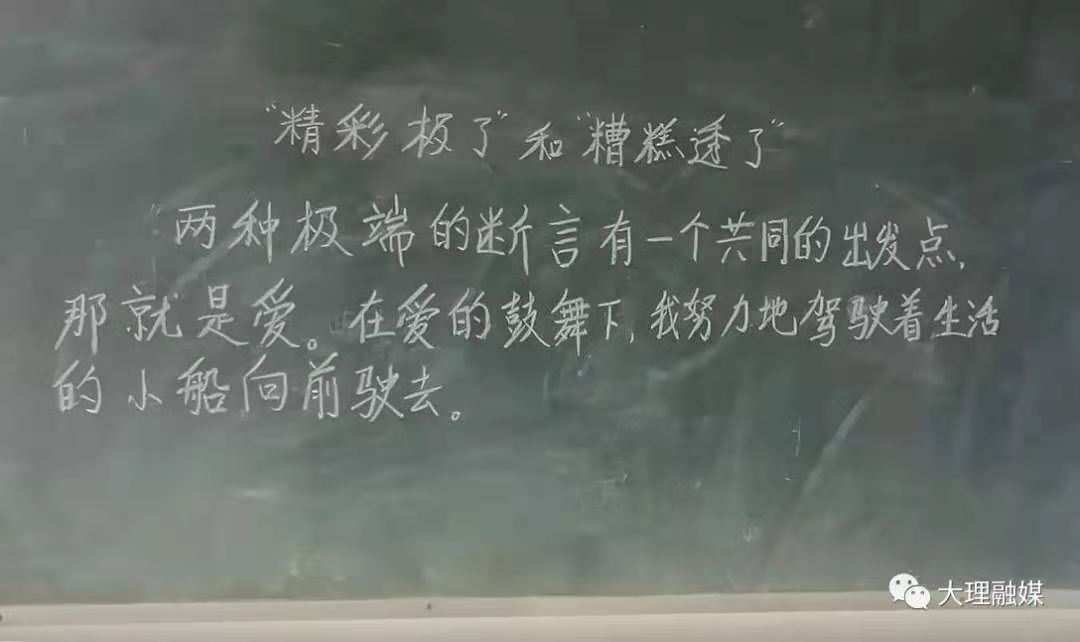 "精彩极了"和"糟糕透了"
"两种极端的断言有一个共同的出发点,
那就是爱。在爱的鼓舞下,我努力地驾驶着生活
的小船向前驶去。
大理融媒